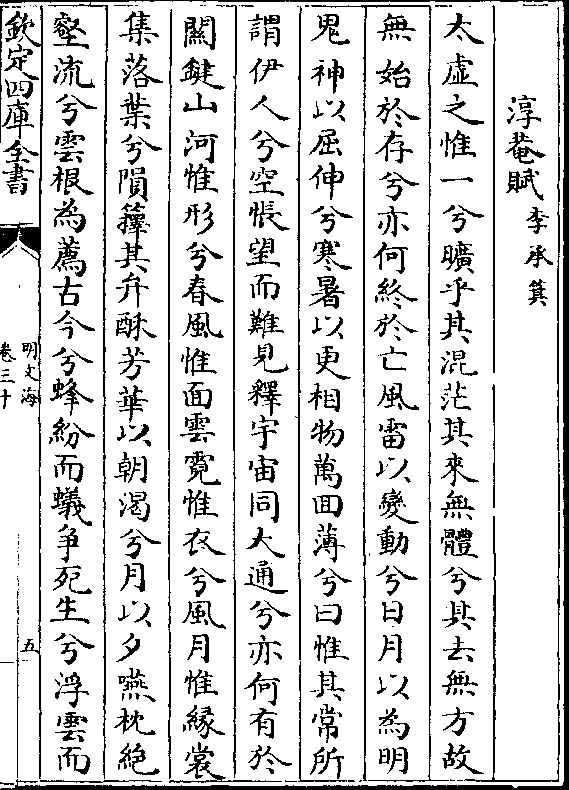 淳菴賦李承箕
太虛之惟一兮曠乎其混茫其來無體兮其去無方故
無始於存兮亦何終於亡風雷以變動兮日月以為明
鬼神以屈伸兮寒暑以更相物萬回薄兮曰惟其常所
謂伊人兮空悵望而難見釋宇宙同大通兮亦何有於
關鍵山河惟形兮春風惟面雲霓惟衣兮風月惟緣裳
集落葉兮隕籜其弁酥芳華以朝渴兮月以夕嚥枕絶
壑流兮雲根為薦古今兮蜂紛而蟻爭死生兮浮雲而
欽定四庫全書
明文海
卷三十
五